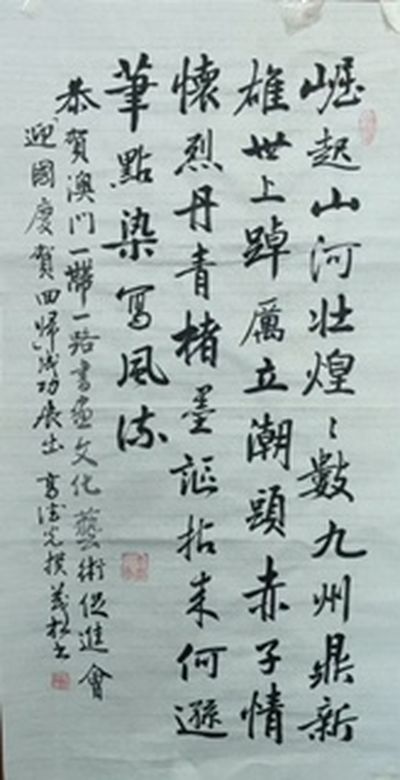 崛起山河壮煌〻數九州鼎新
雄世上踔厲立潮頭赤子情
懷烈丹青楮墨謳拈来何遜
筆點染写風流
恭賀澳门一帶一路書畫文化藝術促進會
迎國慶賀回歸成功展出